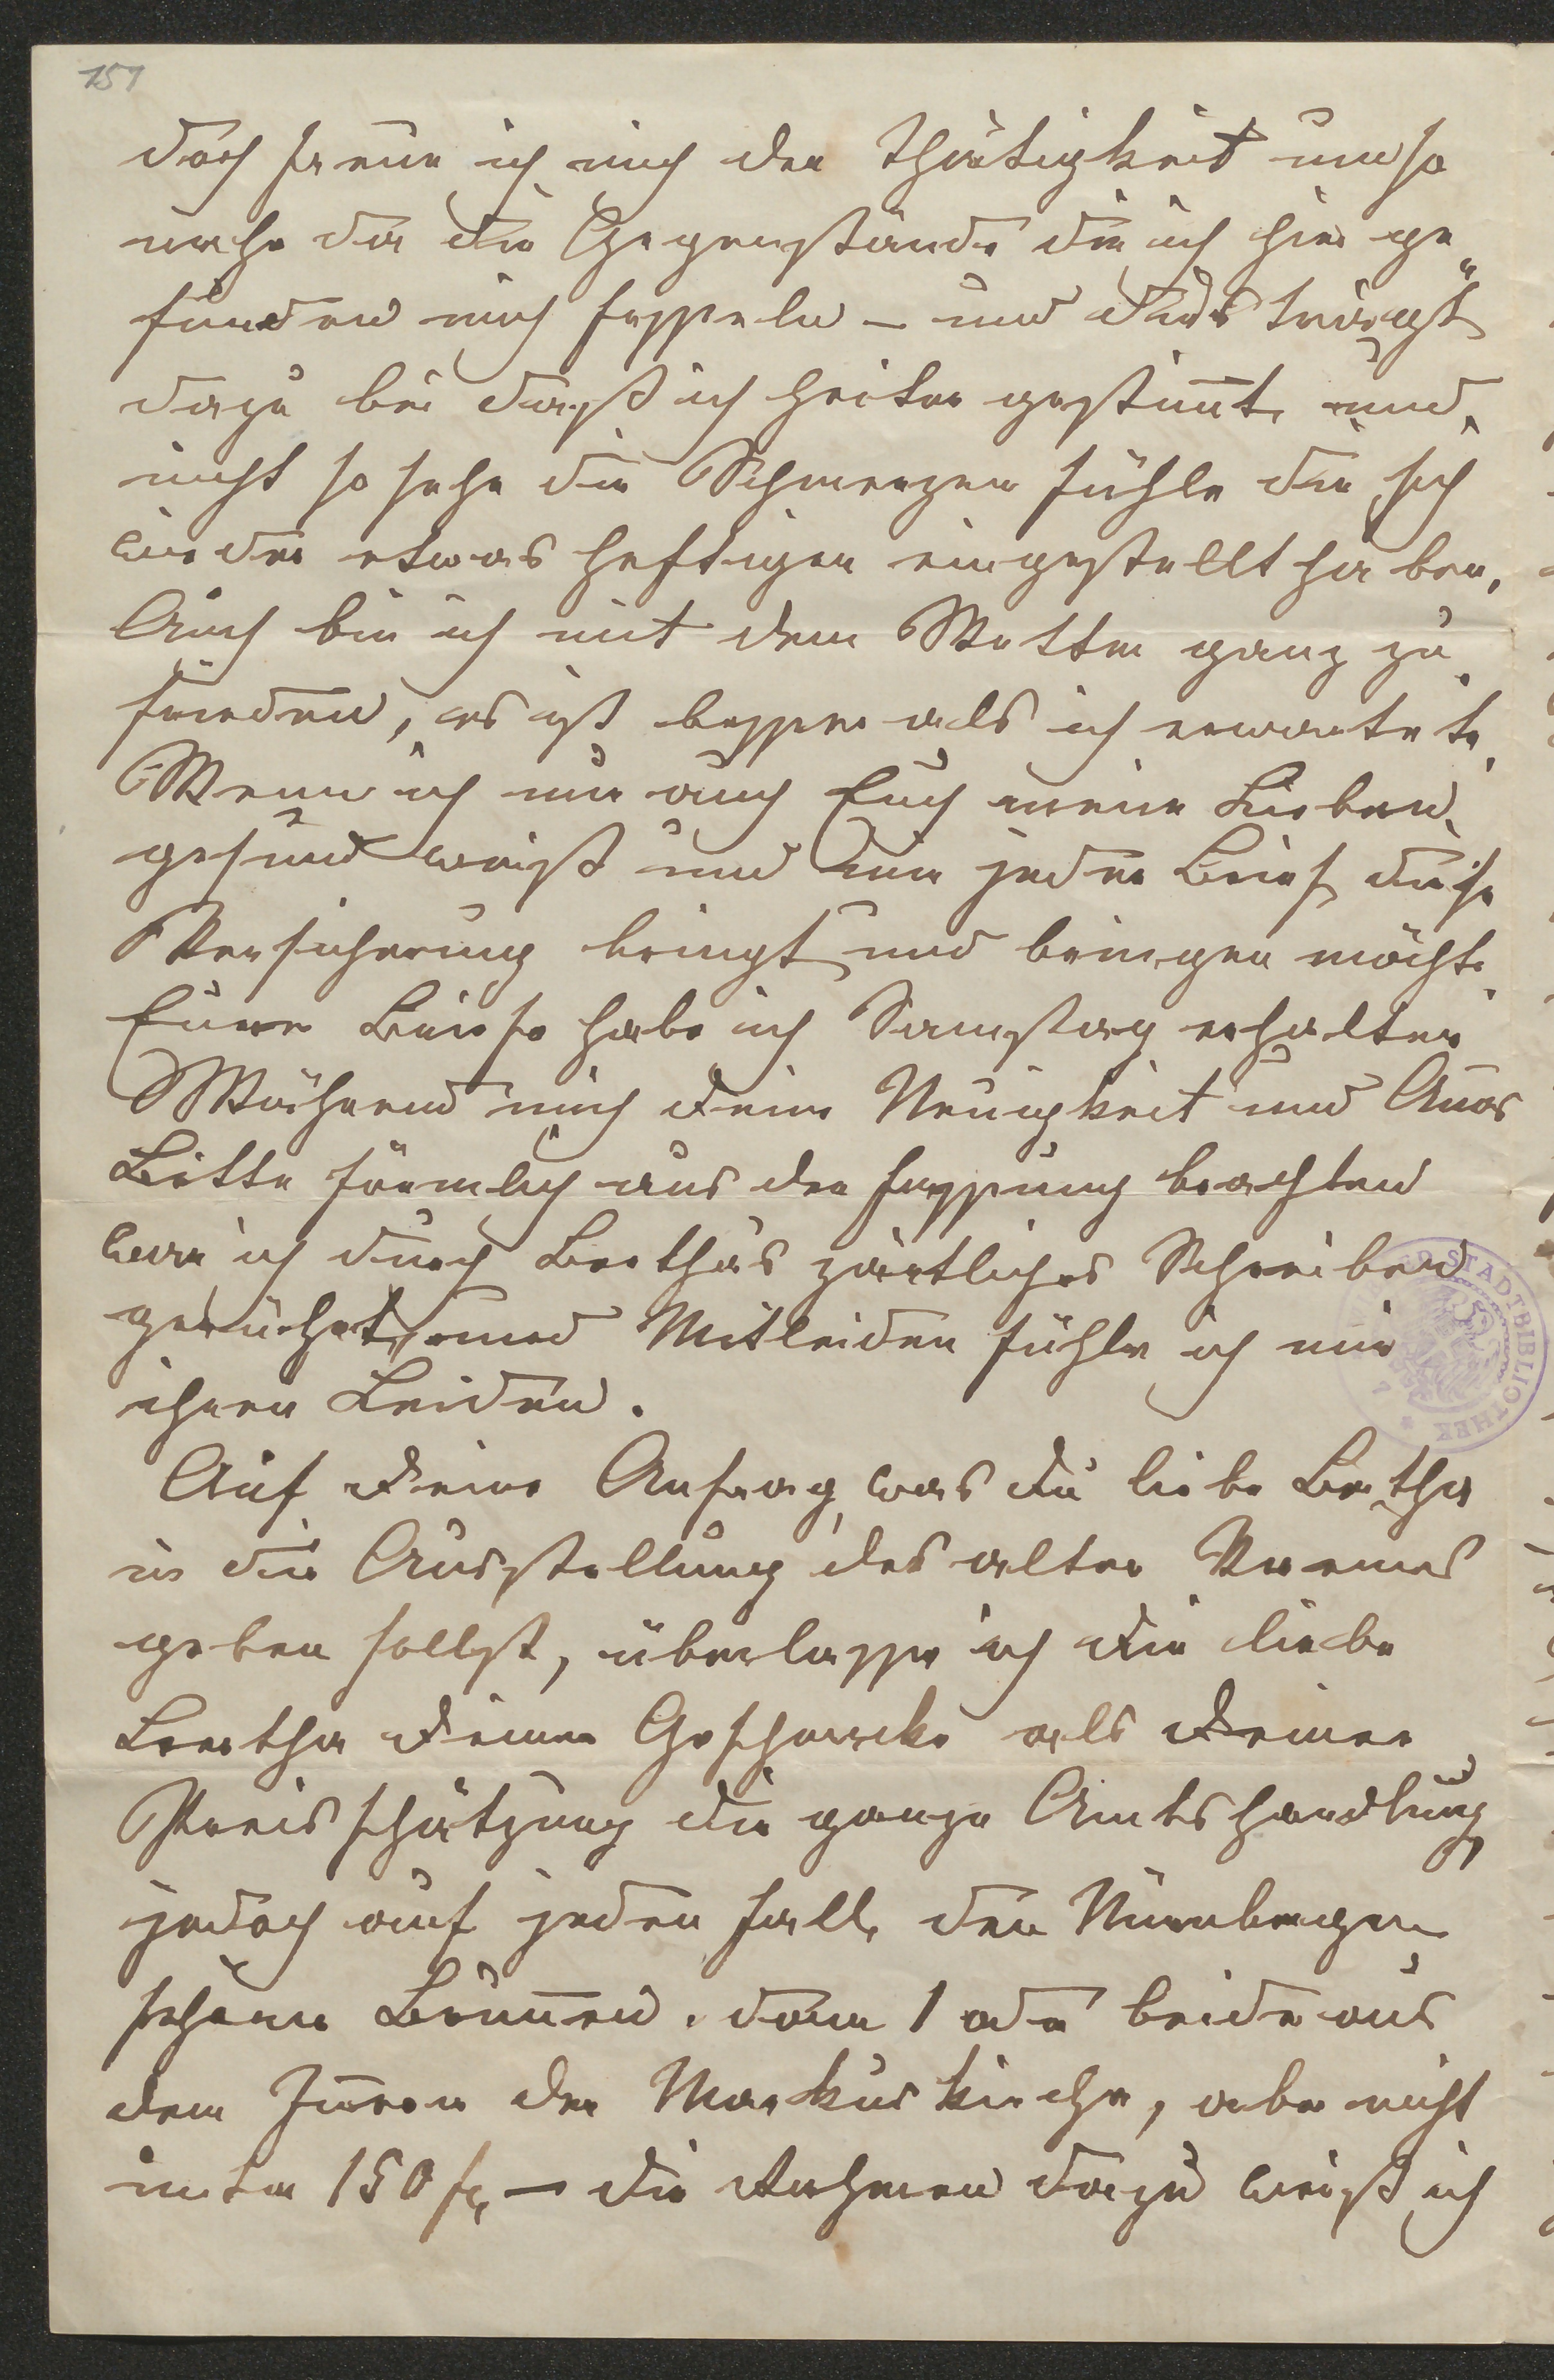 151
doch freue ich mich der Thätigkeit umso
mehr da die Gegenstände die ich hier ge„
funden mich fesseln – und dies trägt
dazu bei daß ich heiter gestim̅t und
nicht so sehr die Schmerzen fühle die sich
wieder etwas heftiger eingestellt haben,
Auch bin ich mit dem Wetter ganz zu
frieden, es ist besser als ich erwartete.
Wenn ich nur auch Euch meine Lieben
gesund weiß und mir jeder Brief diese
Versicherung bringt und bringen möchte.
Eure Briefe habe ich Samstag erhalten
Während mich Deine Neuigkeit und
Bitte förmlich aus der Fassung brachten
war ich durch Berthas zärtliches Schreiben
gerührt, und Mitleiden fühle ich mit
ihren Leiden.
Auf Deine Anfrag was Du liebe Bertha
in die Ausstellung des alten Vereines
geben sollst, überlasse ich Dir liebe
Bertha Deinem Geschmacke als Deiner
Preisschätzung die ganze Amtshandlung,
jedoch auf jeden Fall den Nürnberger
schönen Brun̅en. dann 1 oder beide aus
dem In̅ern der Markuskirche, aber nicht
unter 150 f, – die Rahmen dazu weiß ich
STADTBIBLIOTHEK